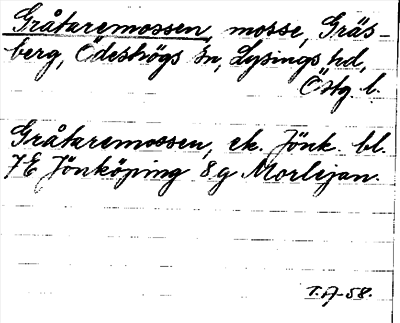 Gråtaremossen, mosse, Gräs-
berg, Ödeshögs sn, Lysings hd,
Östg l.
Gråtaremossen, ek. Jönk. bl.
7E Jönköping 8g Morlejan.
T.A-58.